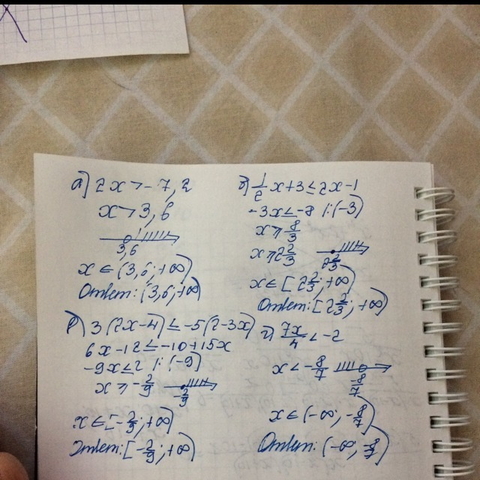 а) 2x > -7,2
x > 3,6
3,6
x ∈ (3,6; +∞)
Ответ: (3,6; +∞)
б) 1/2 x + 3 ≤ 2x - 1
-3x ≤ -8 |:(-3)
x ≥ 8/3
x ≥ 2 2/3
2 2/3
x ∈ [2 2/3; +∞)
Ответ: [2 2/3; +∞)
в) 3(2x-4) ≤ -5(2-3x)
6x - 12 ≤ -10 + 15x
-9x ≤ 2 |:(-9)
x ≥ -2/9
-2/9
x ∈ [-2/9; +∞)
Ответ: [-2/9; +∞)
г) 7x/4 < -2
x < -8/7
-8/7
x ∈ (-∞; -8/7)
Ответ: (-∞; -8/7)